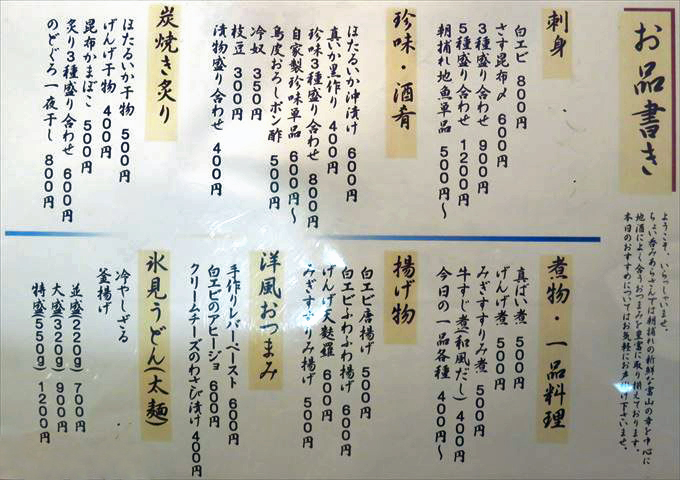 お品書き
ようこそ、いらっしゃいませ。
ちょい呑みあらさんでは朝捕れの新鮮な富山の幸を中心に
地酒によく合うおつまみを豊富に取り揃えております。
本日のおすすめについてはお気軽にお声がけ下さいませ。
刺身
白エビ 800円
さす昆布〆 600円
3種盛り合わせ 900円
5種盛り合わせ 1200円
朝捕れ地魚単品 500円〜
珍味・酒肴
ほたるいか沖漬け 600円
真いか黒作り 400円
珍味3種盛り合わせ 800円
自家製珍味単品 600円〜
鳥皮おろしポン酢 500円
冷奴 350円
枝豆 300円
漬物盛り合わせ 400円
炭焼き炙り
ほたるいか干物 500円
げんげ干物 400円
昆布かまぼこ 500円
炙り3種盛り合わせ 600円
のどぐろ一夜干し 800円
煮物・一品料理
真ばい煮 500円
げんげ煮 500円
みぎすすり身煮 500円
牛すじ煮(和風だし) 400円
今日の一品各種 400円〜
揚げ物
白エビ唐揚げ 500円
白エビふわふわ揚げ 600円
げんげ天麩羅 600円
みぎすすり身揚げ 500円
洋風おつまみ
手作りレバーペースト 600円
白エビのアヒージョ 600円
クリームチーズのわさび漬け 400円
氷見うどん(太麺)
冷やしざる
釜揚げ
並盛(220g) 700円
大盛(320g) 900円
特盛(550g) 1200円